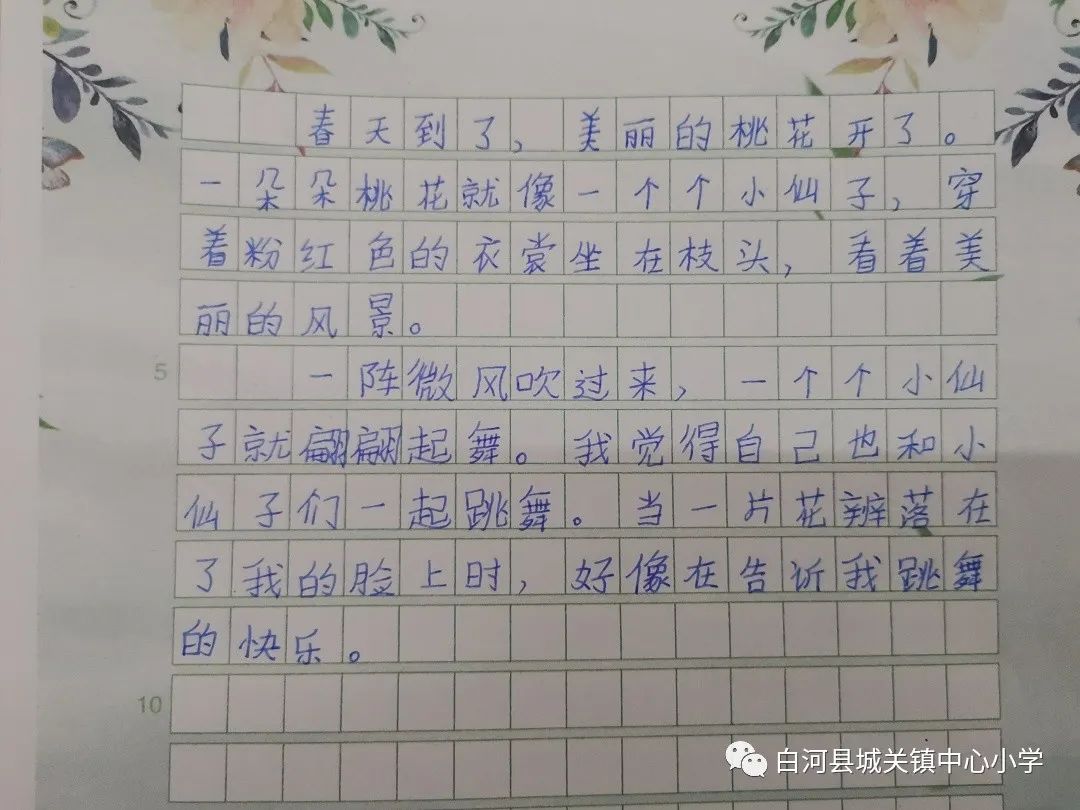 春天到了，美丽的桃花开了。
一朵朵桃花就像一个个小仙子，穿
着粉红色的衣裳坐在枝头，看着美
丽的风景。
5
一阵微风吹过来，一个个小仙
子就翩翩起舞。我觉得自己也和小
仙子们一起跳舞。当一片花辨落在
了我的脸上时，好像在告诉我跳舞
的快乐。
10
白河县城关镇中心小学